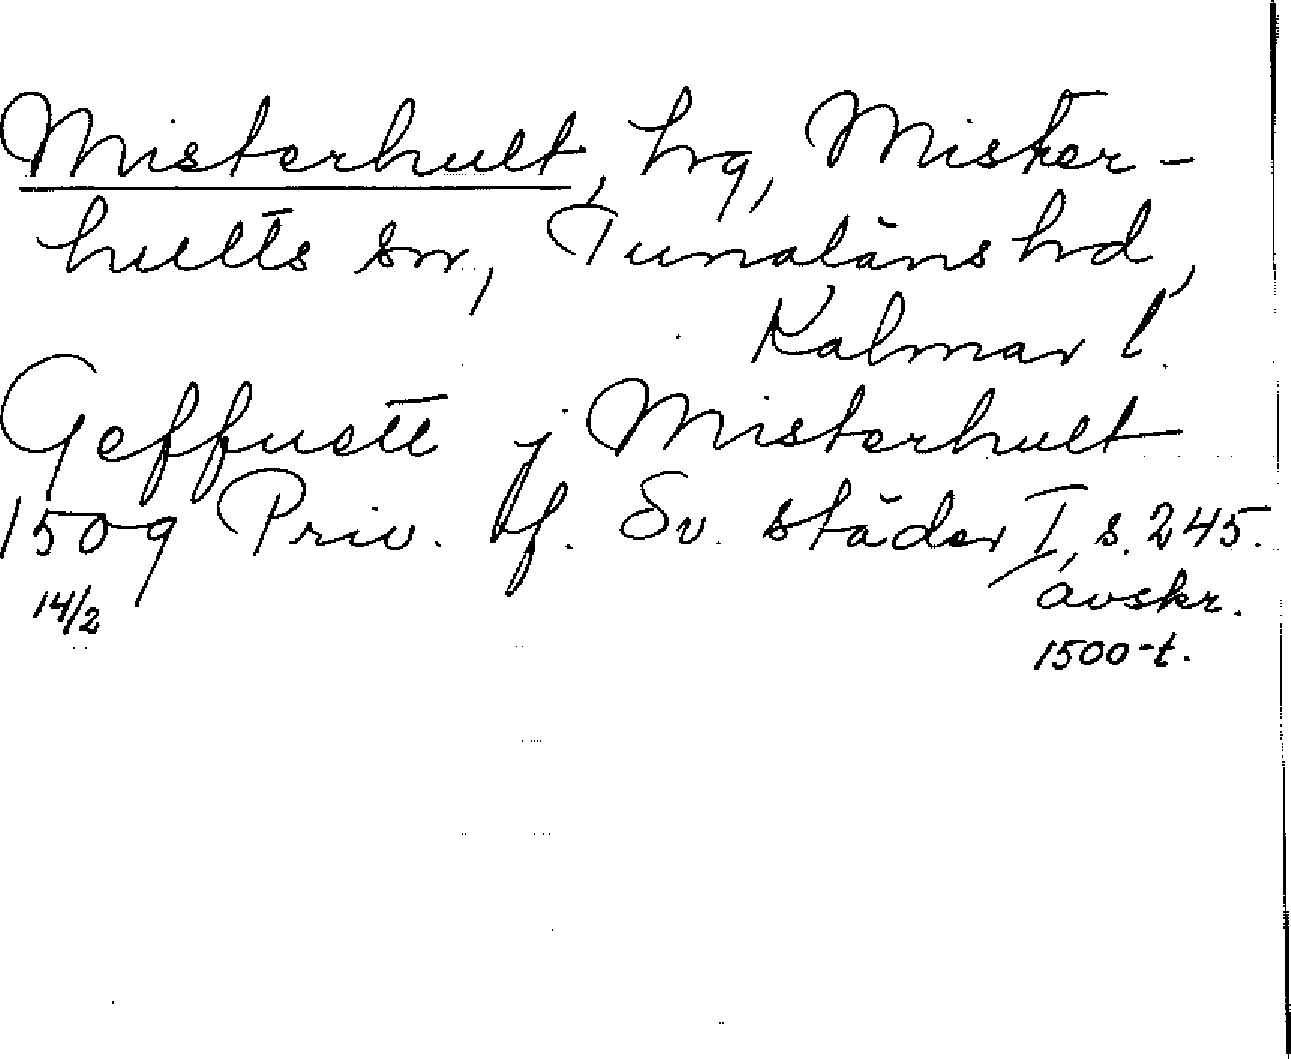 Misterhult, hg, Mister-
hults sn, Tunaläns hd,
Kalmar l.
Geffuett j Misterhult
1509 Priv. f. Sv. städer I, s. 245.
14/2
avskr.
1500-t.